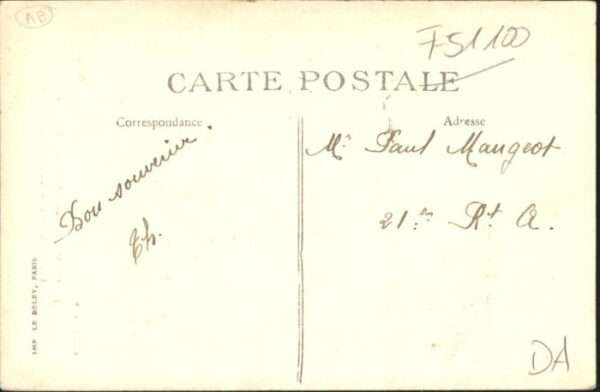 AB
751100
CARTE POSTALE
Correspondance
Adresse
Bon souvenir.
Th.
Mr Paul Mangeot
21. Rt. A.
DA
IMP. LE DELEY, PARIS